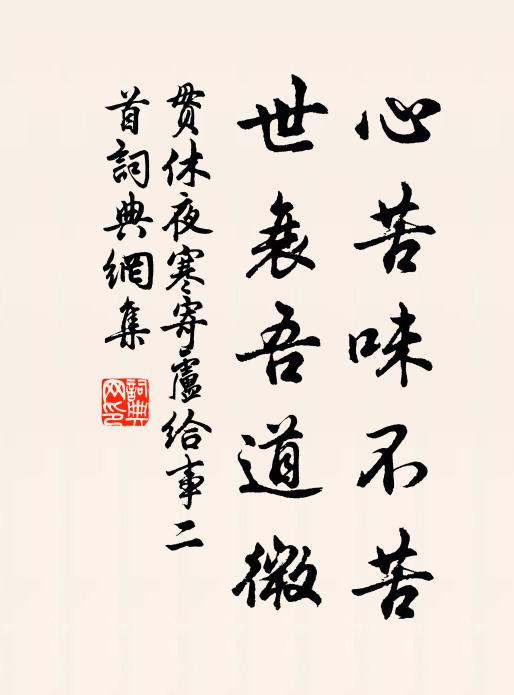 心苦味不苦
世衰吾道微
贯休夜寒寄盧给事二
首詞典網集
詞典
网印